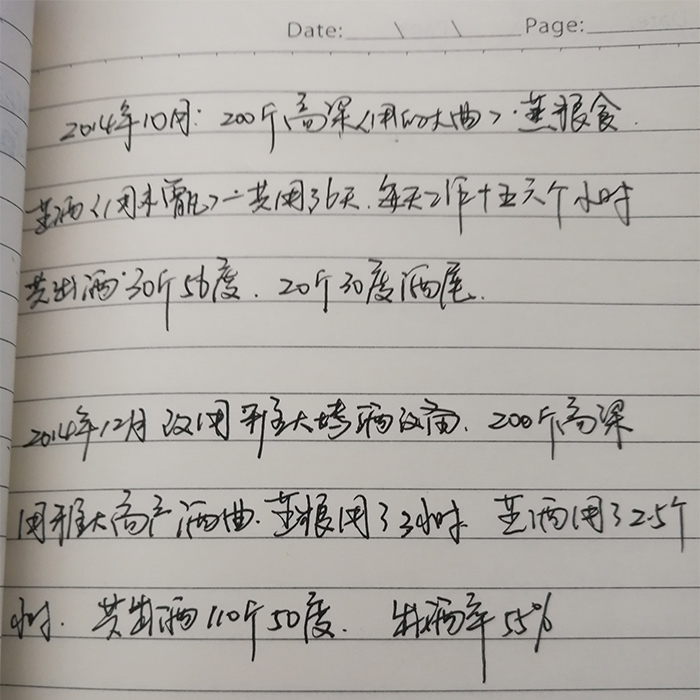 Date: \ \ Page:
2014年10月: 200斤高梁(用的大曲)·蒸粮食
蒸酒(用木甑)一共用了6天.每天工作十五六个小时
共出酒:30斤56度.20斤30度酒尾.
2014年12月改用雅大烤酒设备.200斤高梁
用雅大高产酒曲.蒸粮用了3小时 蒸酒用了2.5个
小时.共出酒110斤50度. 出酒率55%